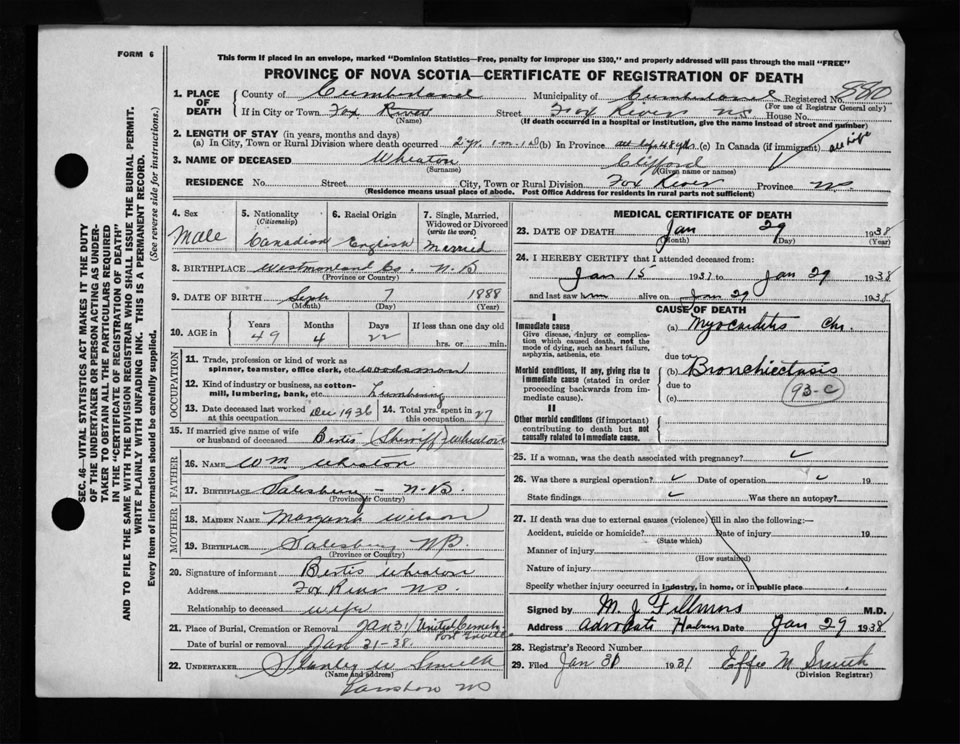 FORM 6
This form if placed in an envelope, marked "Dominion Statistics—Free, penalty for improper use $300," and properly addressed will pass through the mail "FREE"
PROVINCE OF NOVA SCOTIA—CERTIFICATE OF REGISTRATION OF DEATH
1. PLACE OF DEATH
County of Cumberland Municipality of Cumberland Registered No. 880
(For use of Registrar General only)
If in City or Town Fox River Street Fox River N.S. House No.
(Name) (If death occurred in a hospital or institution, give the name instead of street and number)
2. LENGTH OF STAY (in years, months and days)
(a) In City, Town or Rural Division where death occurred 2 yr. 1 m. (b) In Province (c) In Canada (if immigrant) all life
3. NAME OF DECEASED Wheaton Clifford
(Surname) (Given name or names)
RESIDENCE No. Street City, Town or Rural Division Fox River Province N.S.
(Residence means usual place of abode. Post Office Address for residents in rural parts not sufficient)
4. Sex Male
5. Nationality (Citizenship) Canadian
6. Racial Origin English
7. Single, Married, Widowed or Divorced (write the word) Married
8. BIRTHPLACE Westmorland Co. N.B
(Province or Country)
9. DATE OF BIRTH Sept 7 1888
(Month) (Day) (Year)
10. AGE in Years 49 Months 4 Days 22 If less than one day old hrs. or min.
OCCUPATION
11. Trade, profession or kind of work as spinner, teamster, office clerk, etc. woodsman
12. Kind of industry or business, as cotton-mill, lumbering, bank, etc. Lumbering
13. Date deceased last worked at this occupation Dec 1936
14. Total yrs. spent in this occupation 27
15. If married give name of wife or husband of deceased Bertis (Sherriff) Wheaton
FATHER
16. NAME Wm Wheaton
17. BIRTHPLACE Salesbury - N.B.
(Province or Country)
MOTHER
18. MAIDEN NAME Margaret Wilson
19. BIRTHPLACE Salesbury NB.
(Province or Country)
20. Signature of informant Bertis Wheaton
Address Fox River N.S.
Relationship to deceased wife
21. Place of Burial, Cremation or Removal Jan 31 United Cemete- Port Greville
Date of burial or removal Jan 31-38.
22. UNDERTAKER Stanley W Smith
(Name and address)
NS
MEDICAL CERTIFICATE OF DEATH
23. DATE OF DEATH Jan 29 1938
(Month) (Day) (Year)
24. I HEREBY CERTIFY that I attended deceased from:
Jan 15 1937 to Jan 29 1938
and last saw him alive on Jan 29 1938
CAUSE OF DEATH
I
Immediate cause
Give disease, injury or complication which caused death, not the mode of dying, such as heart failure, asphyxia, asthenia, etc
(a) Myocarditis Chr.
due to
Morbid conditions, if any, giving rise to immediate cause (stated in order proceeding backwards from immediate cause).
(b) Bronchiectasis
due to
(c)
93-c
II
Other morbid conditions (if important) contributing to death but not causally related to immediate cause.
25. If a woman, was the death associated with pregnancy?
26. Was there a surgical operation? Date of operation 19
State findings Was there an autopsy?
27. If death was due to external causes (violence) fill in also the following:—
Accident, suicide or homicide? Date of injury 19
(State which)
Manner of injury
(How sustained)
Nature of injury
Specify whether injury occurred in industry, in home, or in public place
Signed by M. J. Fillmore M.D.
Address Advocate Harbour Date Jan 29 1938
28. Registrar's Record Number
29. Filed Jan 31 1931 Effie M Smith
(Division Registrar)
SEC. 46—VITAL STATISTICS ACT MAKES IT THE DUTY
OF THE UNDERTAKER OR PERSON ACTING AS UNDER-
TAKER TO OBTAIN ALL THE PARTICULARS REQUIRED
IN THE "CERTIFICATE OF REGISTRATION OF DEATH"
AND TO FILE THE SAME WITH THE DIVISION REGISTRAR WHO SHALL ISSUE THE BURIAL PERMIT.
WRITE PLAINLY WITH UNFADING INK. THIS IS A PERMANENT RECORD.
Every item of information should be carefully supplied. (See reverse side for instructions.)